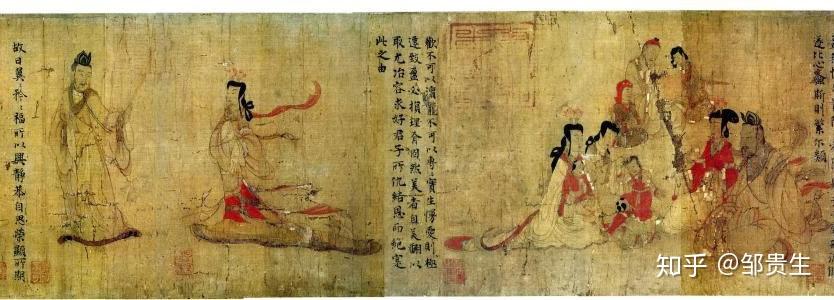 遂比心螽斯則繁尔類
歡不可以瀆寵不可以專實生慢愛則極
遷致盈必損理有固然美者自美翩以
取尤冶容求好君子所仇結恩而絕寔
此之由
故曰翼矜福所以興靜恭自思榮顯所期
知乎 @邹贵生